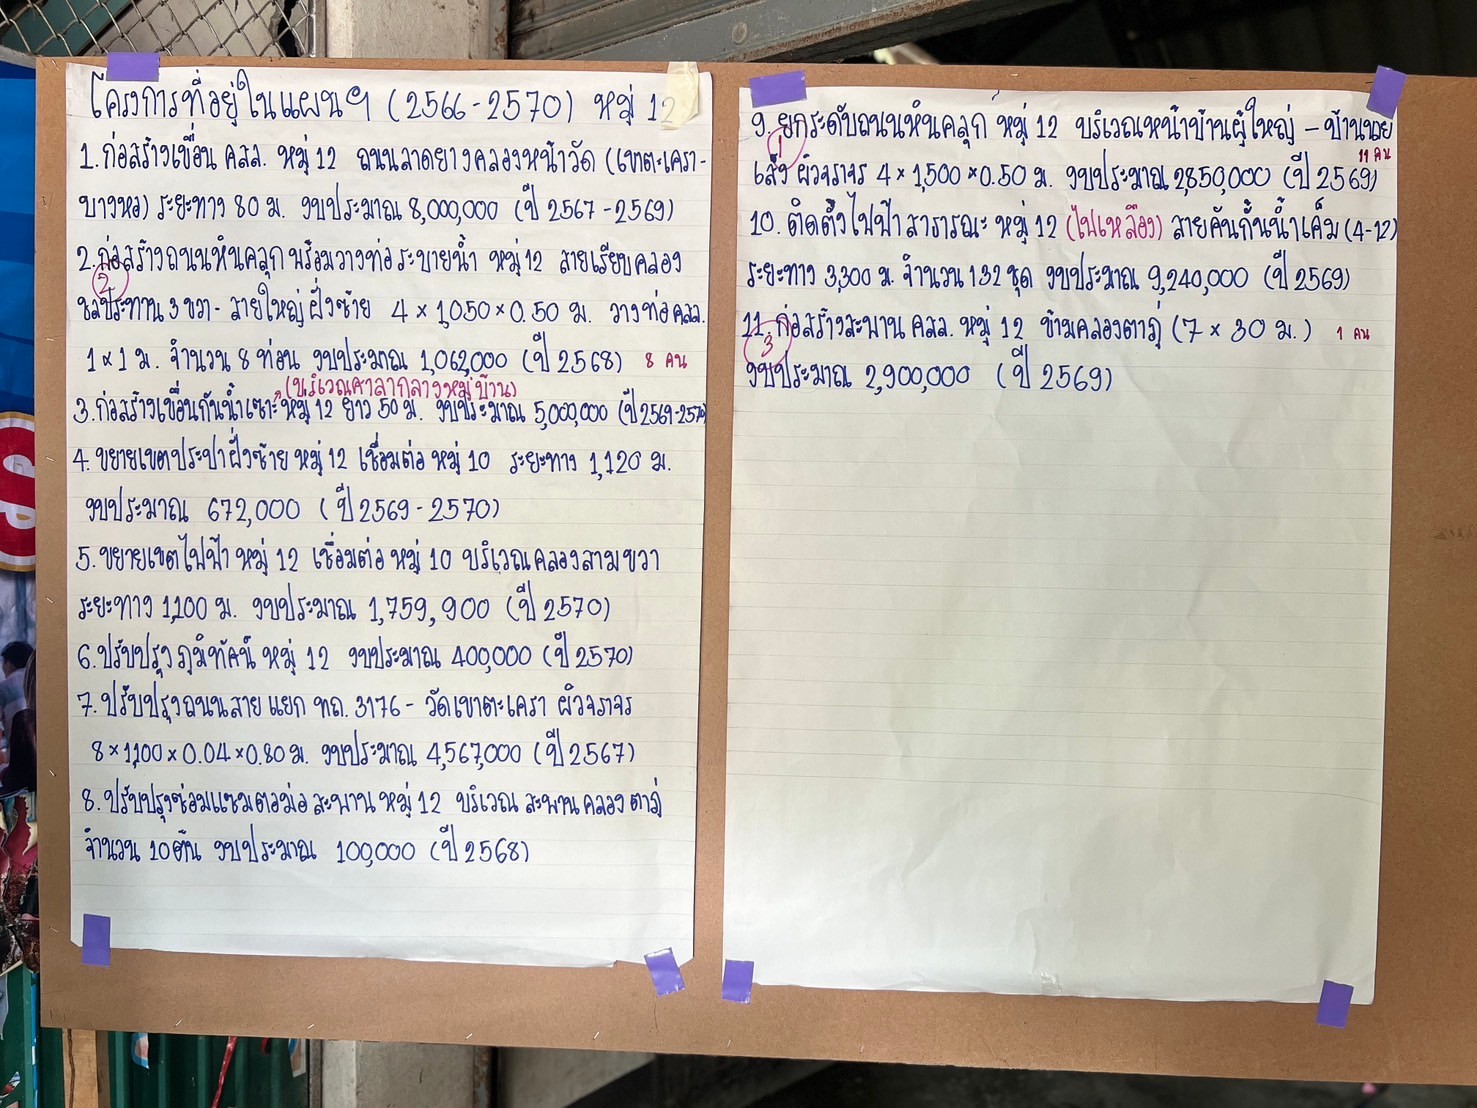 โครงการที่อยู่ในแผนฯ (2566-2570) หมู่ 12
1. ก่อสร้างเขื่อน คสล. หมู่ 12 ถนนลาดยางคลองหน้าวัด (เขาตะเครา-
บางหอ) ระยะทาง 80 ม. งบประมาณ 8,000,000 (ปี 2567-2569)
2. ก่อสร้างถนนหินคลุก พร้อมวางท่อระบายน้ำ หมู่ 12 สายเรียบคลอง
2
ชลประทาน 3 ขวา - สายใหญ่ฝั่งซ้าย 4 × 1,050 × 0.50 ม. วางท่อ คสล.
1 × 1 ม. จำนวน 8 ท่อน งบประมาณ 1,062,000 (ปี 2568) 8 คน
(บริเวณศาลากลางหมู่บ้าน)
3. ก่อสร้างเขื่อนกันน้ำเซาะ หมู่ 12 ยาว 50 ม. งบประมาณ 5,000,000 (ปี 2569-2570)
4. ขยายเขตประปาฝั่งซ้าย หมู่ 12 เชื่อมต่อ หมู่ 10 ระยะทาง 1,120 ม.
งบประมาณ 672,000 (ปี 2569-2570)
5. ขยายเขตไฟฟ้า หมู่ 12 เชื่อมต่อ หมู่ 10 บริเวณคลองสามขวา
ระยะทาง 1,100 ม. งบประมาณ 1,759,900 (ปี 2570)
6. ปรับปรุงภูมิทัศน์ หมู่ 12 งบประมาณ 400,000 (ปี 2570)
7. ปรับปรุงถนนสาย แยก ทถ. 3176 - วัดเขาตะเครา ผิวจราจร
8 × 1,100 × 0.04 × 0.80 ม. งบประมาณ 4,567,000 (ปี 2567)
8. ปรับปรุงซ่อมแซมตอม่อ สะพาน หมู่ 12 บริเวณ สะพานคลองตาภู่
จำนวน 10 ต้น งบประมาณ 100,000 (ปี 2568)
9. ยกระดับถนนหินคลุก หมู่ 12 บริเวณหน้าบ้านผู้ใหญ่ - บ้านนาย
1
11 คน
เส็ง ผิวจราจร 4 × 1,500 × 0.50 ม. งบประมาณ 2,850,000 (ปี 2569)
10. ติดตั้งไฟฟ้าสาธารณะ หมู่ 12 (ไฟเหลือง) สายคันกั้นน้ำเค็ม (4-12)
ระยะทาง 3,300 ม. จำนวน 132 ชุด งบประมาณ 9,240,000 (ปี 2569)
11. ก่อสร้างสะพาน คสล. หมู่ 12 ข้ามคลองตาภู่ (7 × 30 ม.) 1 คน
3
งบประมาณ 2,900,000 (ปี 2569)